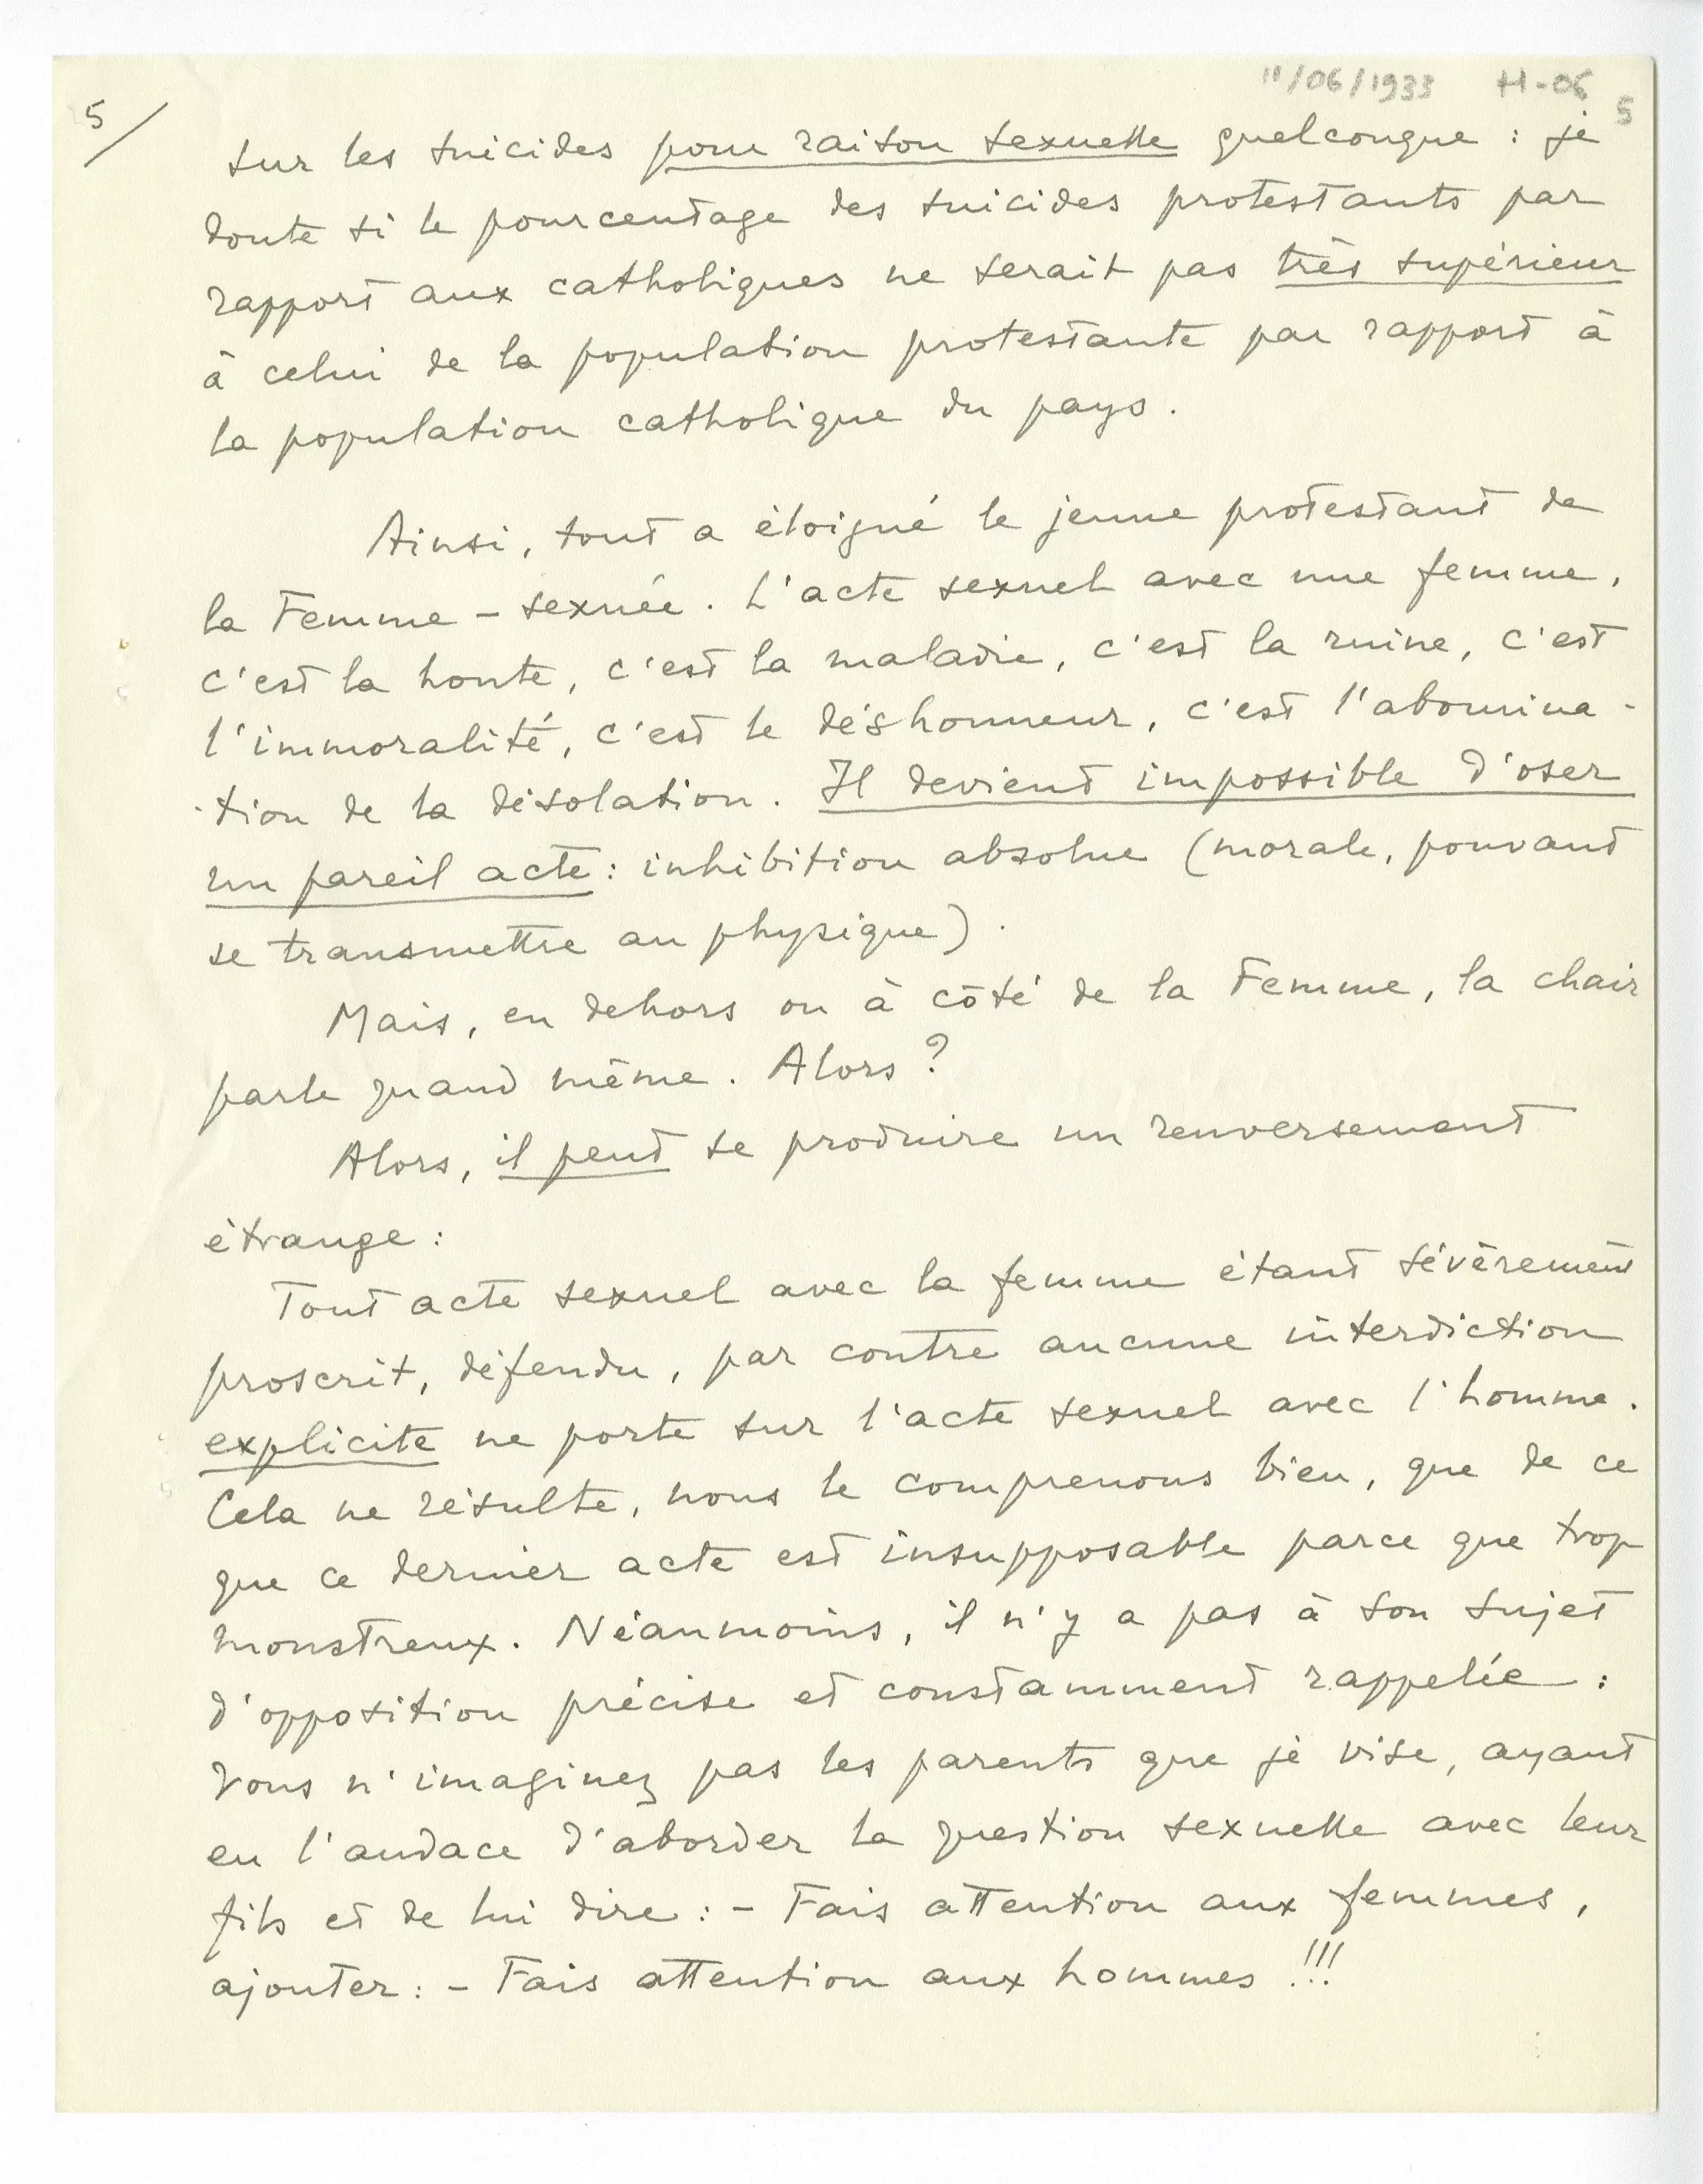 11/06/1933 H-06 5
5/
sur les suicides pour raison sexuelle quelconque : je
doute si le pourcentage des suicides protestants par
rapport aux catholiques ne serait pas très supérieur
à celui de la population protestante par rapport à
la population catholique du pays.
Ainsi, tout a éloigné le jeune protestant de
la Femme - sexuée. L'acte sexuel avec une femme,
c'est la honte, c'est la maladie, c'est la ruine, c'est
l'immoralité, c'est le déshonneur, c'est l'abomina-
-tion de la désolation. Il devient impossible d'oser
un pareil acte : inhibition absolue (morale, pouvant
se transmettre au physique).
Mais, en dehors ou à côté de la Femme, la chair
parle quand même. Alors ?
Alors, il peut se produire un renversement
étrange :
Tout acte sexuel avec la femme étant sévèrement
proscrit, défendu, par contre aucune interdiction
explicite ne porte sur l'acte sexuel avec l'homme.
Cela ne résulte, nous le comprenons bien, que de ce
que ce dernier acte est insupposable parce que trop
monstreux. Néanmoins, il n'y a pas à son sujet
d'opposition précise et constamment rappelée :
Vous n'imaginez pas les parents que je vise, ayant
eu l'audace d'aborder la question sexuelle avec leur
fils et de lui dire : - Fais attention aux femmes,
ajouter : - Fais attention aux hommes !!!